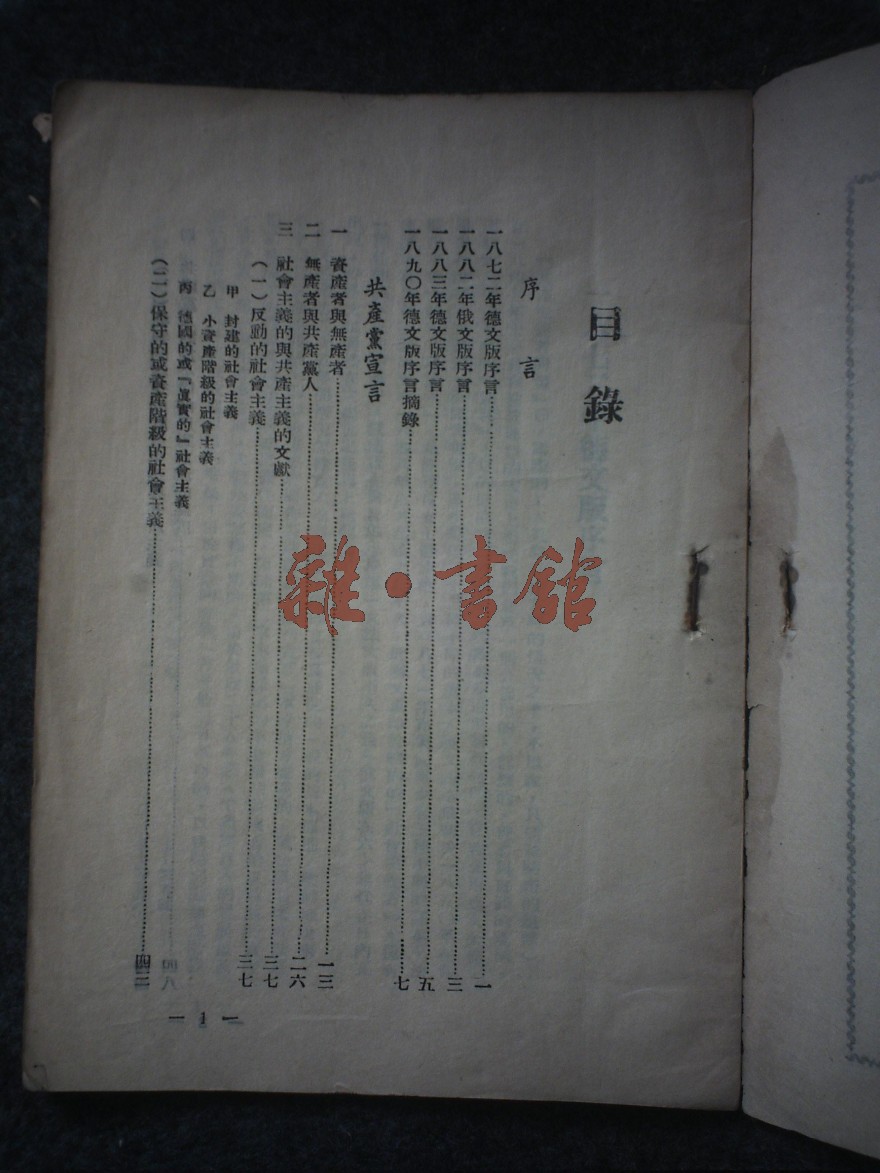 目錄
序言
一八七二年德文版序言……一
一八八二年俄文版序言……三
一八八三年德文版序言……五
一八九〇年德文版序言摘錄……七
共產黨宣言
一 資產者與無產者……一三
二 無產者與共產黨人……二六
三 社會主義的與共產主義的文獻……三七
(一)反動的社會主義……三七
甲 封建的社會主義
乙 小資產階級的社會主義
丙 德國的或『眞實的』社會主義
(二)保守的或資產階級的社會主義……
— 1 —
雜·書館